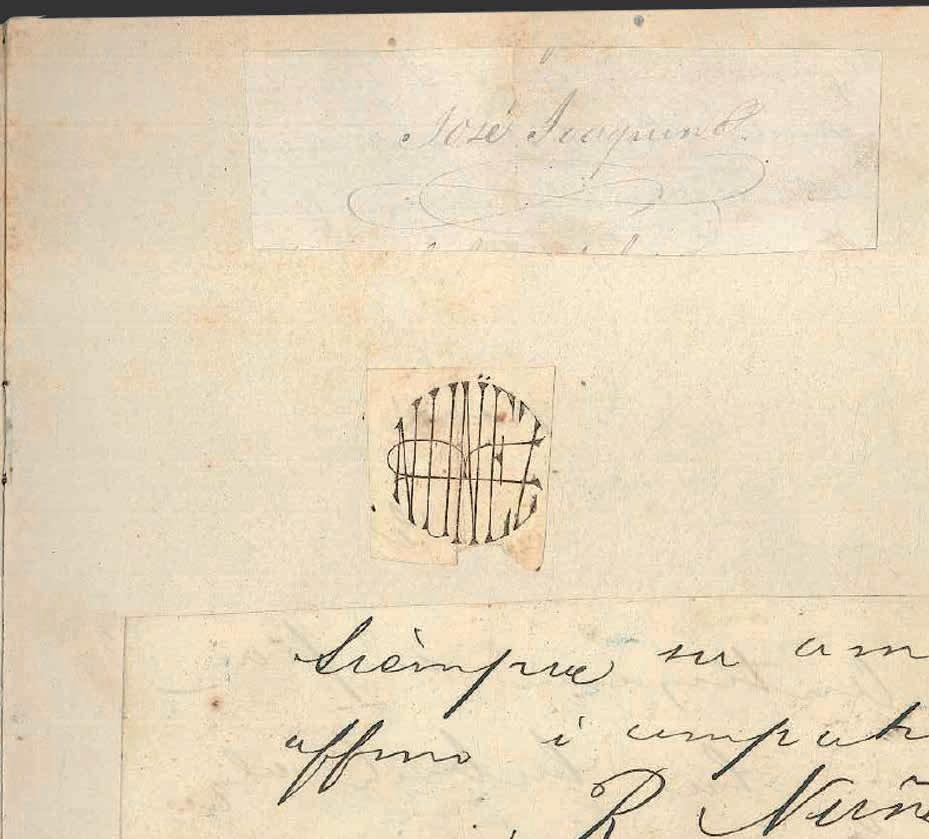 José Joaquin
Siempre su am
affmo i compatr
R Nuñe